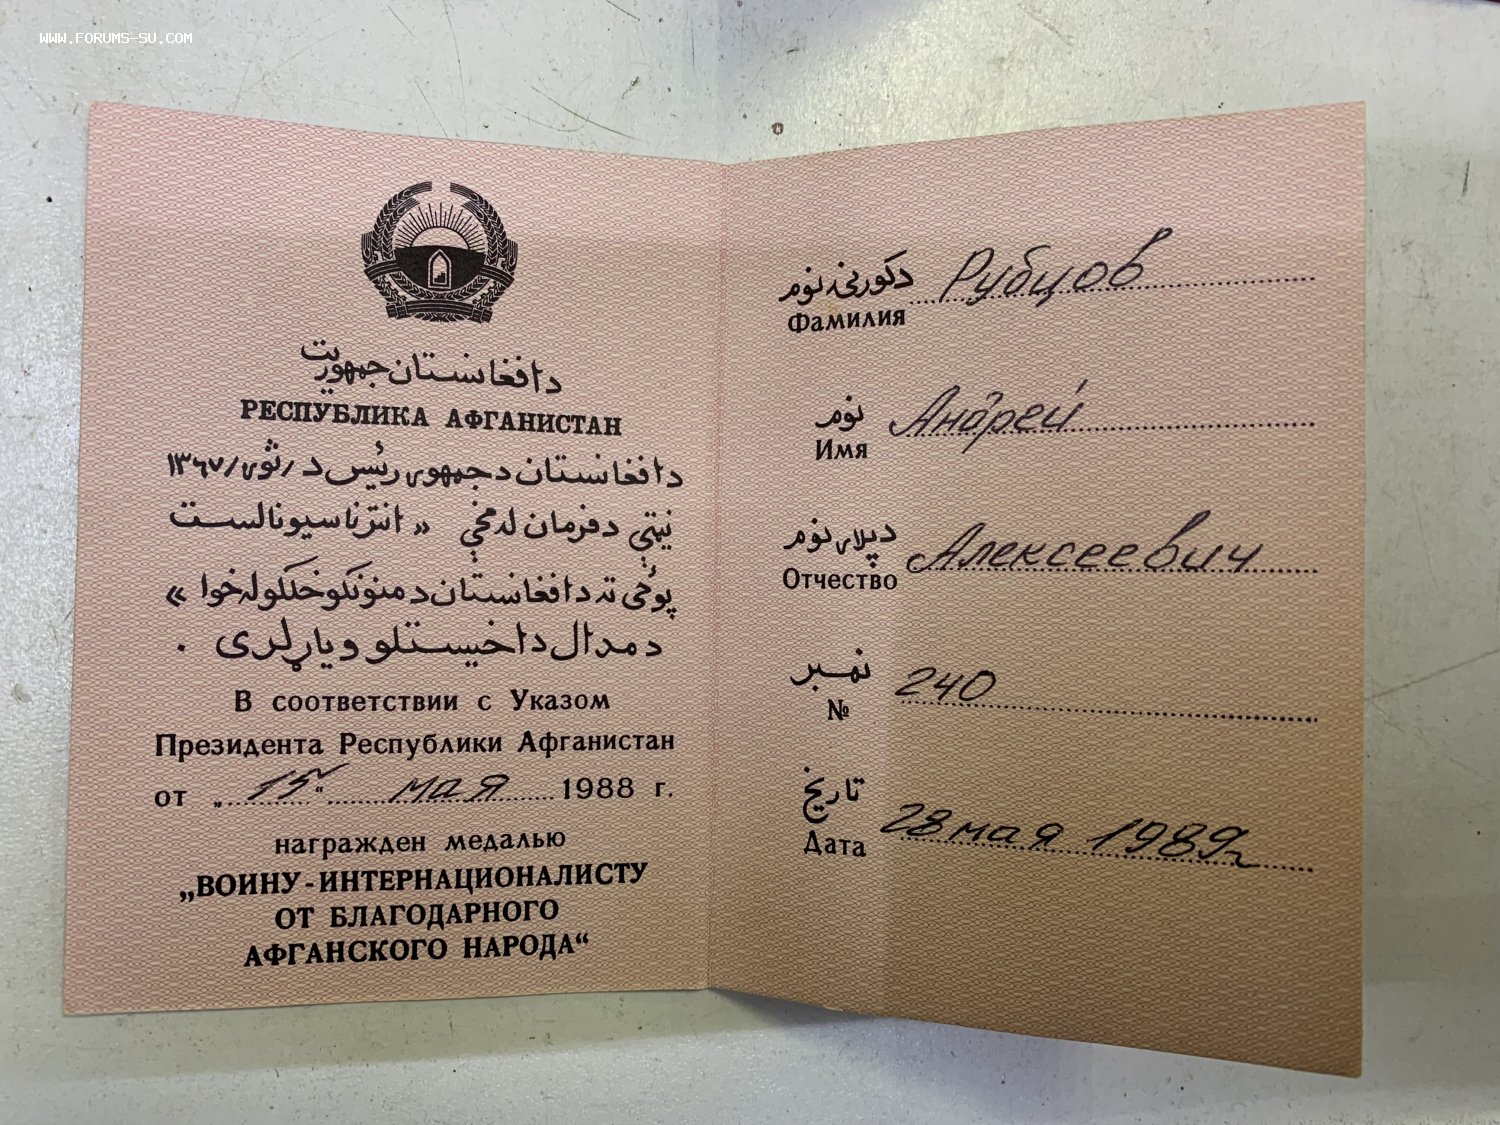 WWW.FORUMS-SU.COM
دافغانستان جمهوریت
РЕСПУБЛИКА АФГАНИСТАН
دافغانستان د جمهوری رئیس د / ثوی / ۱۳۶۷
نیټې د فرمان له مخې « انترناسیونالست
پوځی ته د افغانستان د منونکو خلکو له خوا »
د مدال د اخیستلو ویاړ لری .
В соответствии с Указом
Президента Республики Афганистан
от „15“ мая 1988 г.
награжден медалью
„ВОИНУ-ИНТЕРНАЦИОНАЛИСТУ
ОТ БЛАГОДАРНОГО
АФГАНСКОГО НАРОДА“
دکورنۍ نوم Рубцов
Фамилия
نوم Андрей
Имя
د پلار نوم Алексеевич
Отчество
نمبر 240
№
تاریخ 28 мая 1989г
Дата